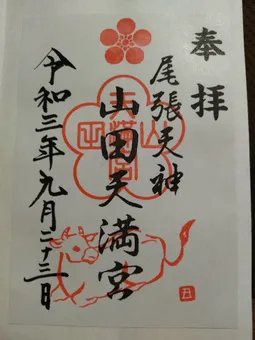 奉拝
尾張天神
山田天満宮
令和三年九月二十三日
丑